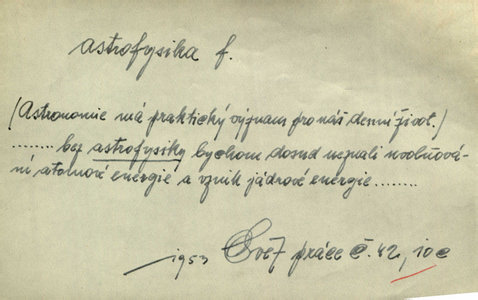 astrofysika f.
(Astronomie má praktický význam pro náš denní život.)
........ bez astrofysiky bychom dosud neznali uvolňová-
ní atomové energie a vznik jádrové energie ........
1953 Svět práce č. 42, 10c